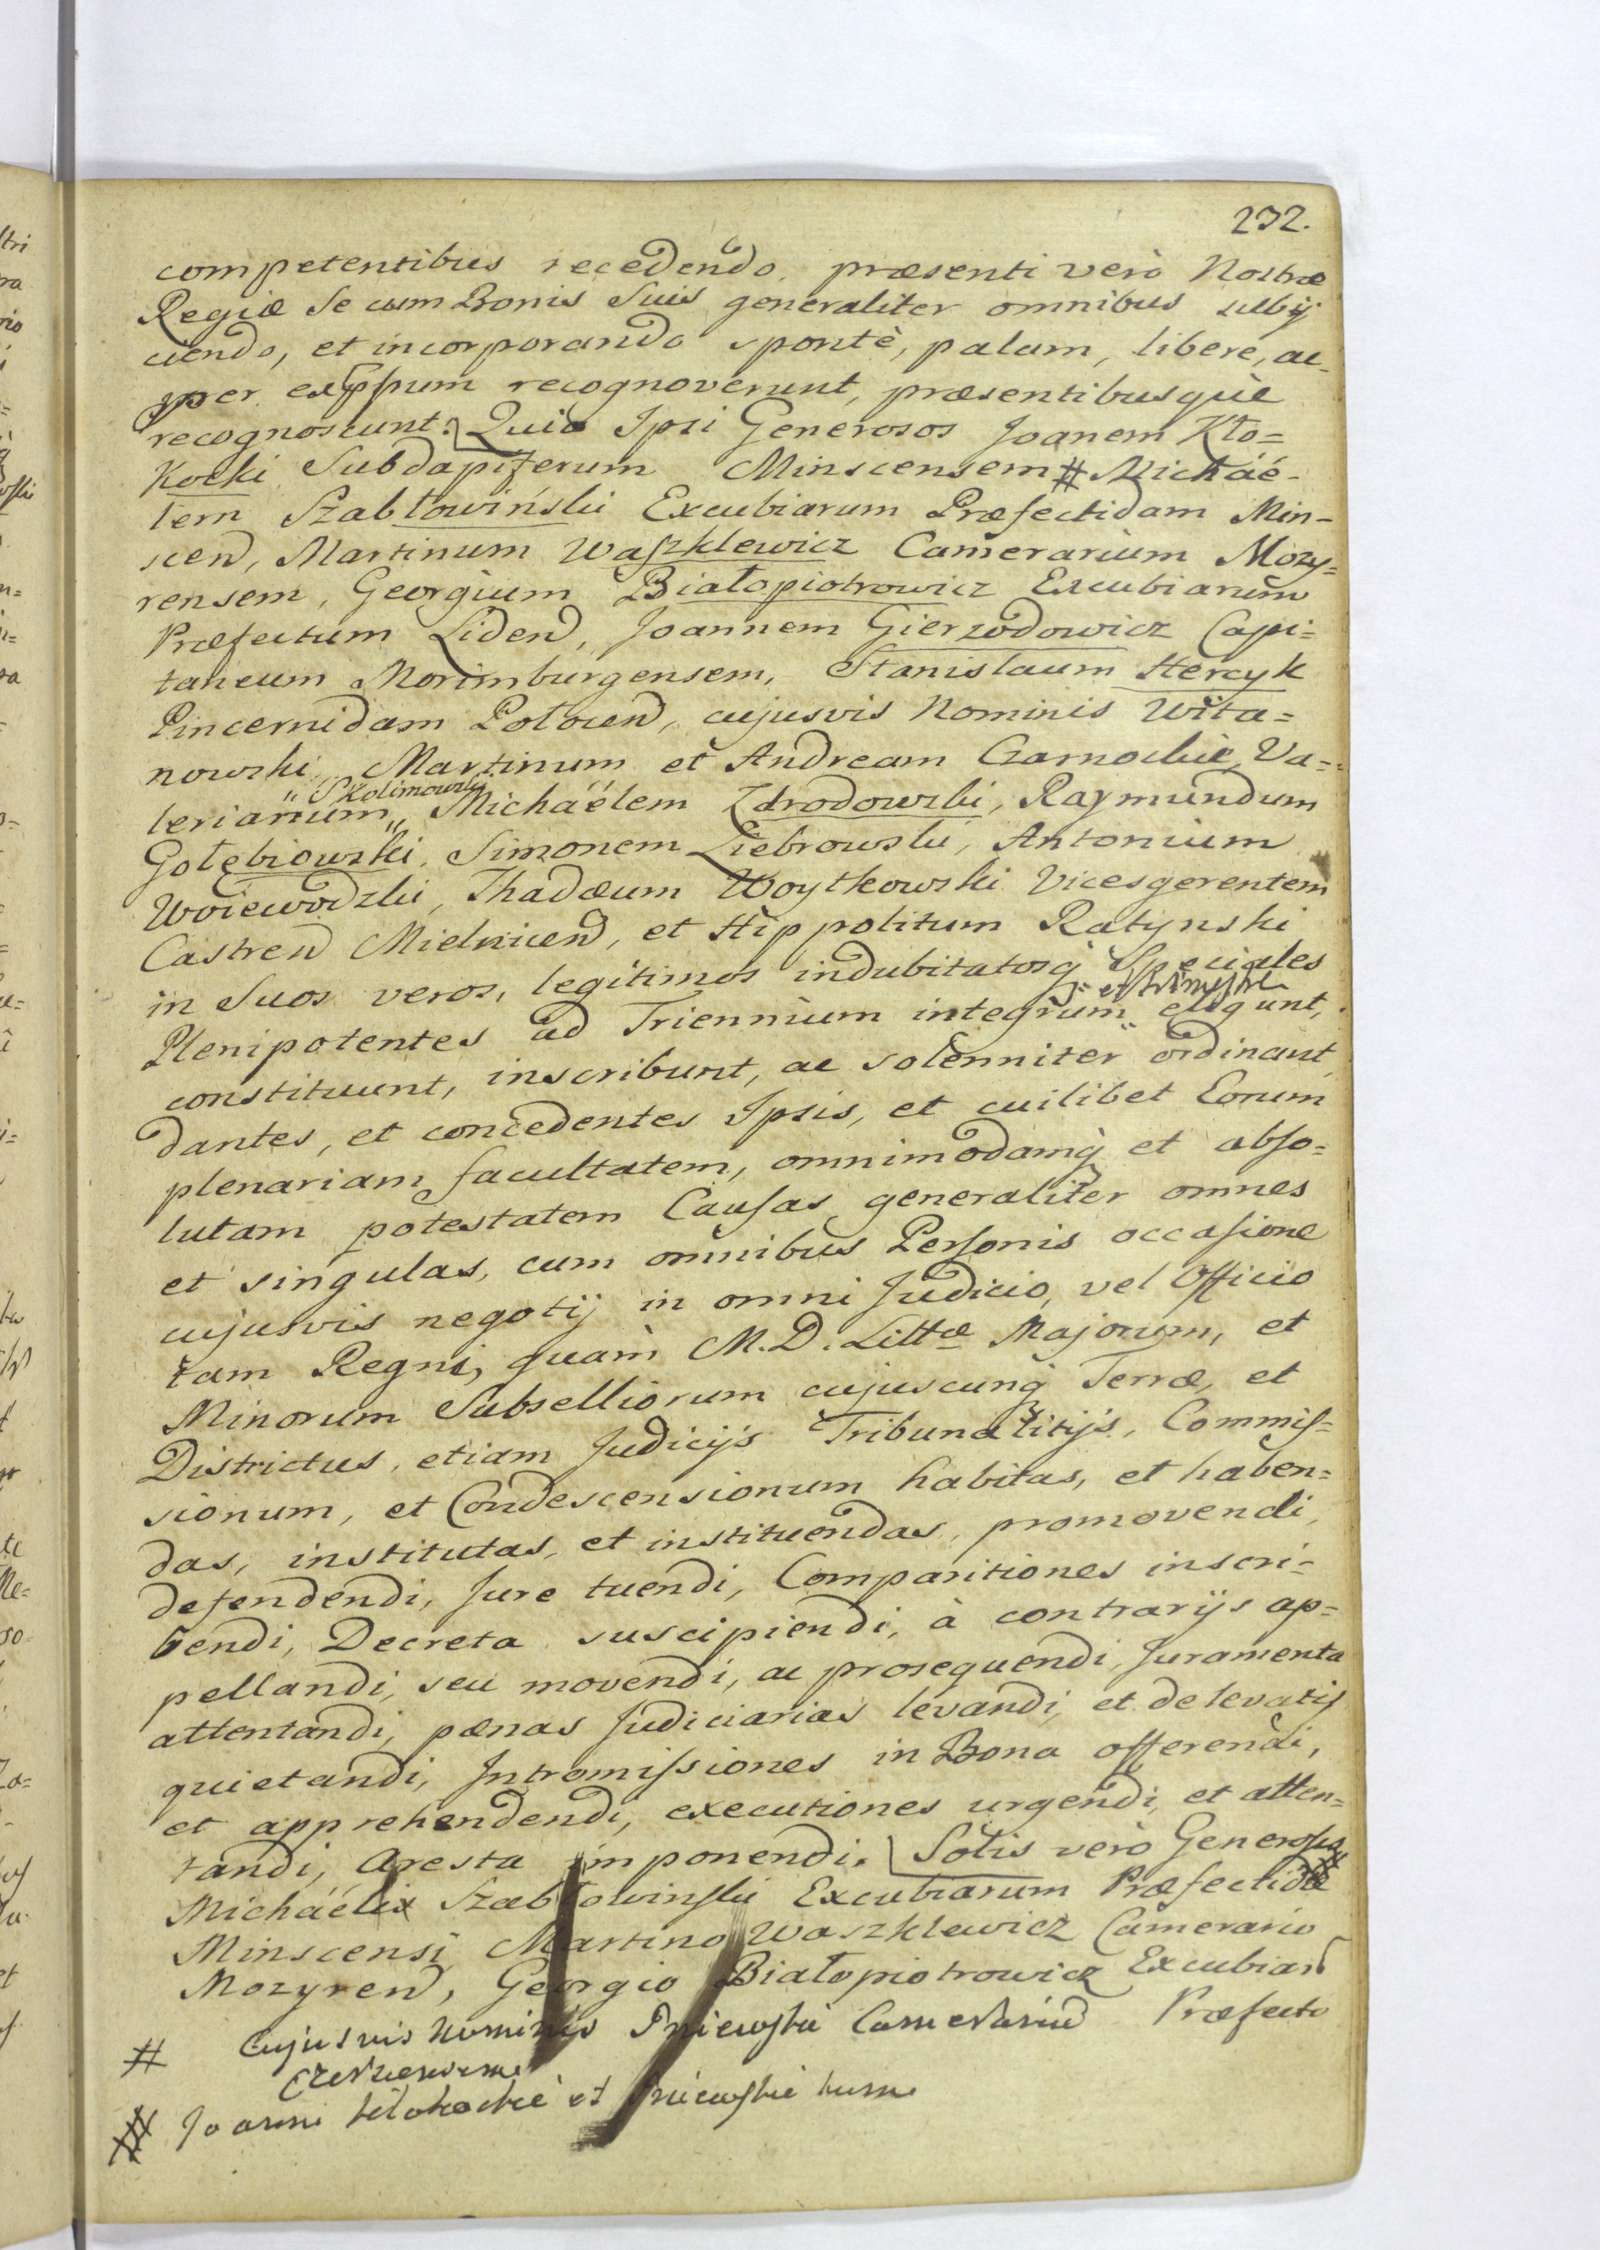 232.
competentibus recedendo, præsenti verò Nostræ
Regiæ Se cum Bonis Suis generaliter omnibus subij
ciendo, et incorporando spontè, palam, libere, ac
per expssum recognoverunt, præsentibusquè
recognoscunt. Quia Ipsi Generosos Joanem Kło=
kocki Subdapiferum Minscensem # Michaé-
lem Szabłowiński Excubiarum Præfectidam Min-
scen, Martinum Waszklewicz Camerarium Mozy=
rensem, Georgium Białopiotrowicz Excubiarum
Præfectum Liden, Joannem Gierzodowicz Capi=
taneum Morimburgensem, Stanislaum Hercyk
Pincernidam Polocen, cujusvis Nominis Wita=
nowski, Martinum et Andream Czarnockie, Va=
lerianum " Skolimowski " Michaélem Zdrodowski, Raymundum
Gołębiowski, Simonem Ziebrowski, Antonium
Woiewodzki, Thadæum Woytkowski Vicesgerentem
Castren Mielnicen, et Hippolitum Ratynski
in Suos veros, legitimos indubitatosq Speciales
Plenipotentes ad Triennium integrum " et trimestre eligunt,
constituunt, inscribunt, ac solenniter ordinant
dantes, et concedentes Ipsis, et cuilibet Eorum
plenariam facultatem, omnimodamq et abso=
lutam potestatem Causas generaliter omnes
et singulas, cum omnibus Personis occasione
cujusvis negotij in omni Judicio, vel Officio
tam Regni, quam M. D. Littæ Majorum, et
Minorum Subselliorum cujuscunq Terræ, et
Districtus, etiam Judicijs Tribunalitijs, Commis=
sionum, et Condescensionum habitas, et haben=
das, institutas, et instituendas, promovendi,
defendendi, Jure tuendi, Comparitiones inscri=
bendi, Decreta suscipiendi, à contrarijs ap=
pellandi, seu movendi, ac prosequendi, Juramenta
attentandi, pænas Judiciarias levandi, et de levatis
quietandi, Intromissiones in Bona offerendi,
et apprehendendi, executiones urgendi, et atten=
tandi, Aresta imponendi. Solis verò Generosis #
Michaéli Szabłowinski Excubiarum Præfectidæ
Minscensi Martino Waszklewicz Camerario
Mozyren, Georgio Białopiotrowicz Excubiar
Præfecto
# Cujusvis Nominis Pniewski Camerarium
# Joanni Kłokockie et Pniewskie tum